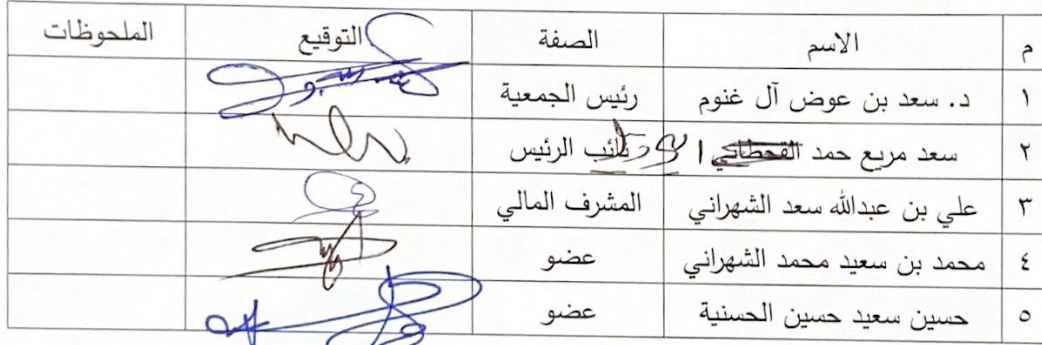 م الاسم الصفة التوقيع الملحوظات
١ د. سعد بن عوض آل غنوم رئيس الجمعية
٢ سعد مريع حمد القحطاني نائب الرئيس
٣ علي بن عبدالله سعد الشهراني المشرف المالي
٤ محمد بن سعيد محمد الشهراني عضو
٥ حسين سعيد حسين الحسنية عضو